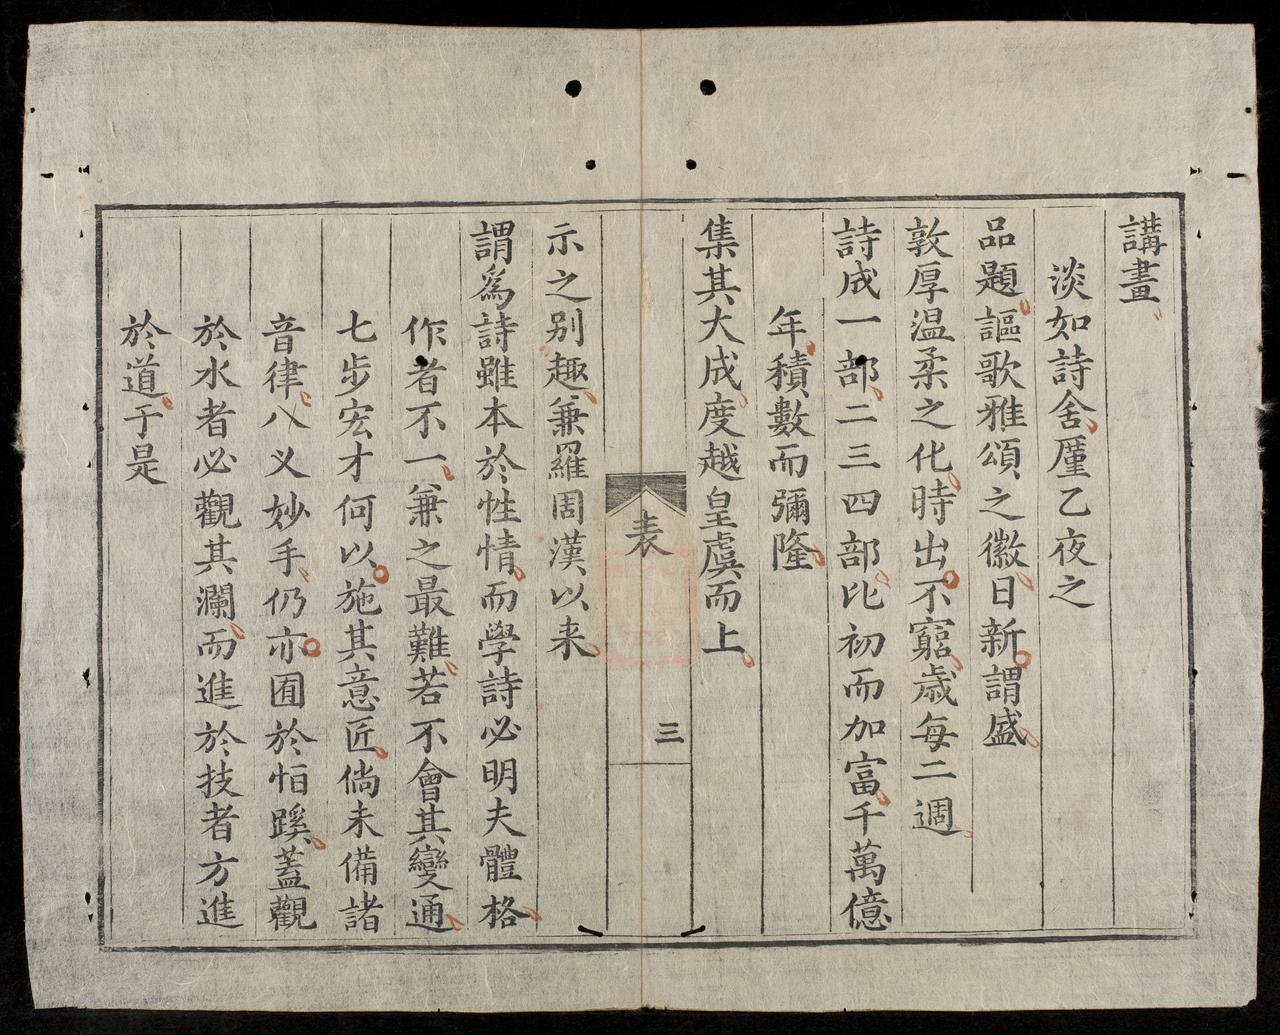 講畫
淡如詩舍厪乙夜之
品題謳歌雅頌之徽日新謂盛
敦厚温柔之化時出不窮歲每二週
詩成一部二三四部比初而加富千萬億
年積數而彌隆
集其大成度越皇虞而上
表
三
示之别趣兼羅周漢以来
謂爲詩雖本於性情而學詩必明夫體格
作者不一兼之最難若不會其變通
七步宏才何以施其意匠倘未備諸
音律八义妙手仍亦囿於恒蹊蓋觀
於水者必觀其瀾而進於技者方進
於道于是